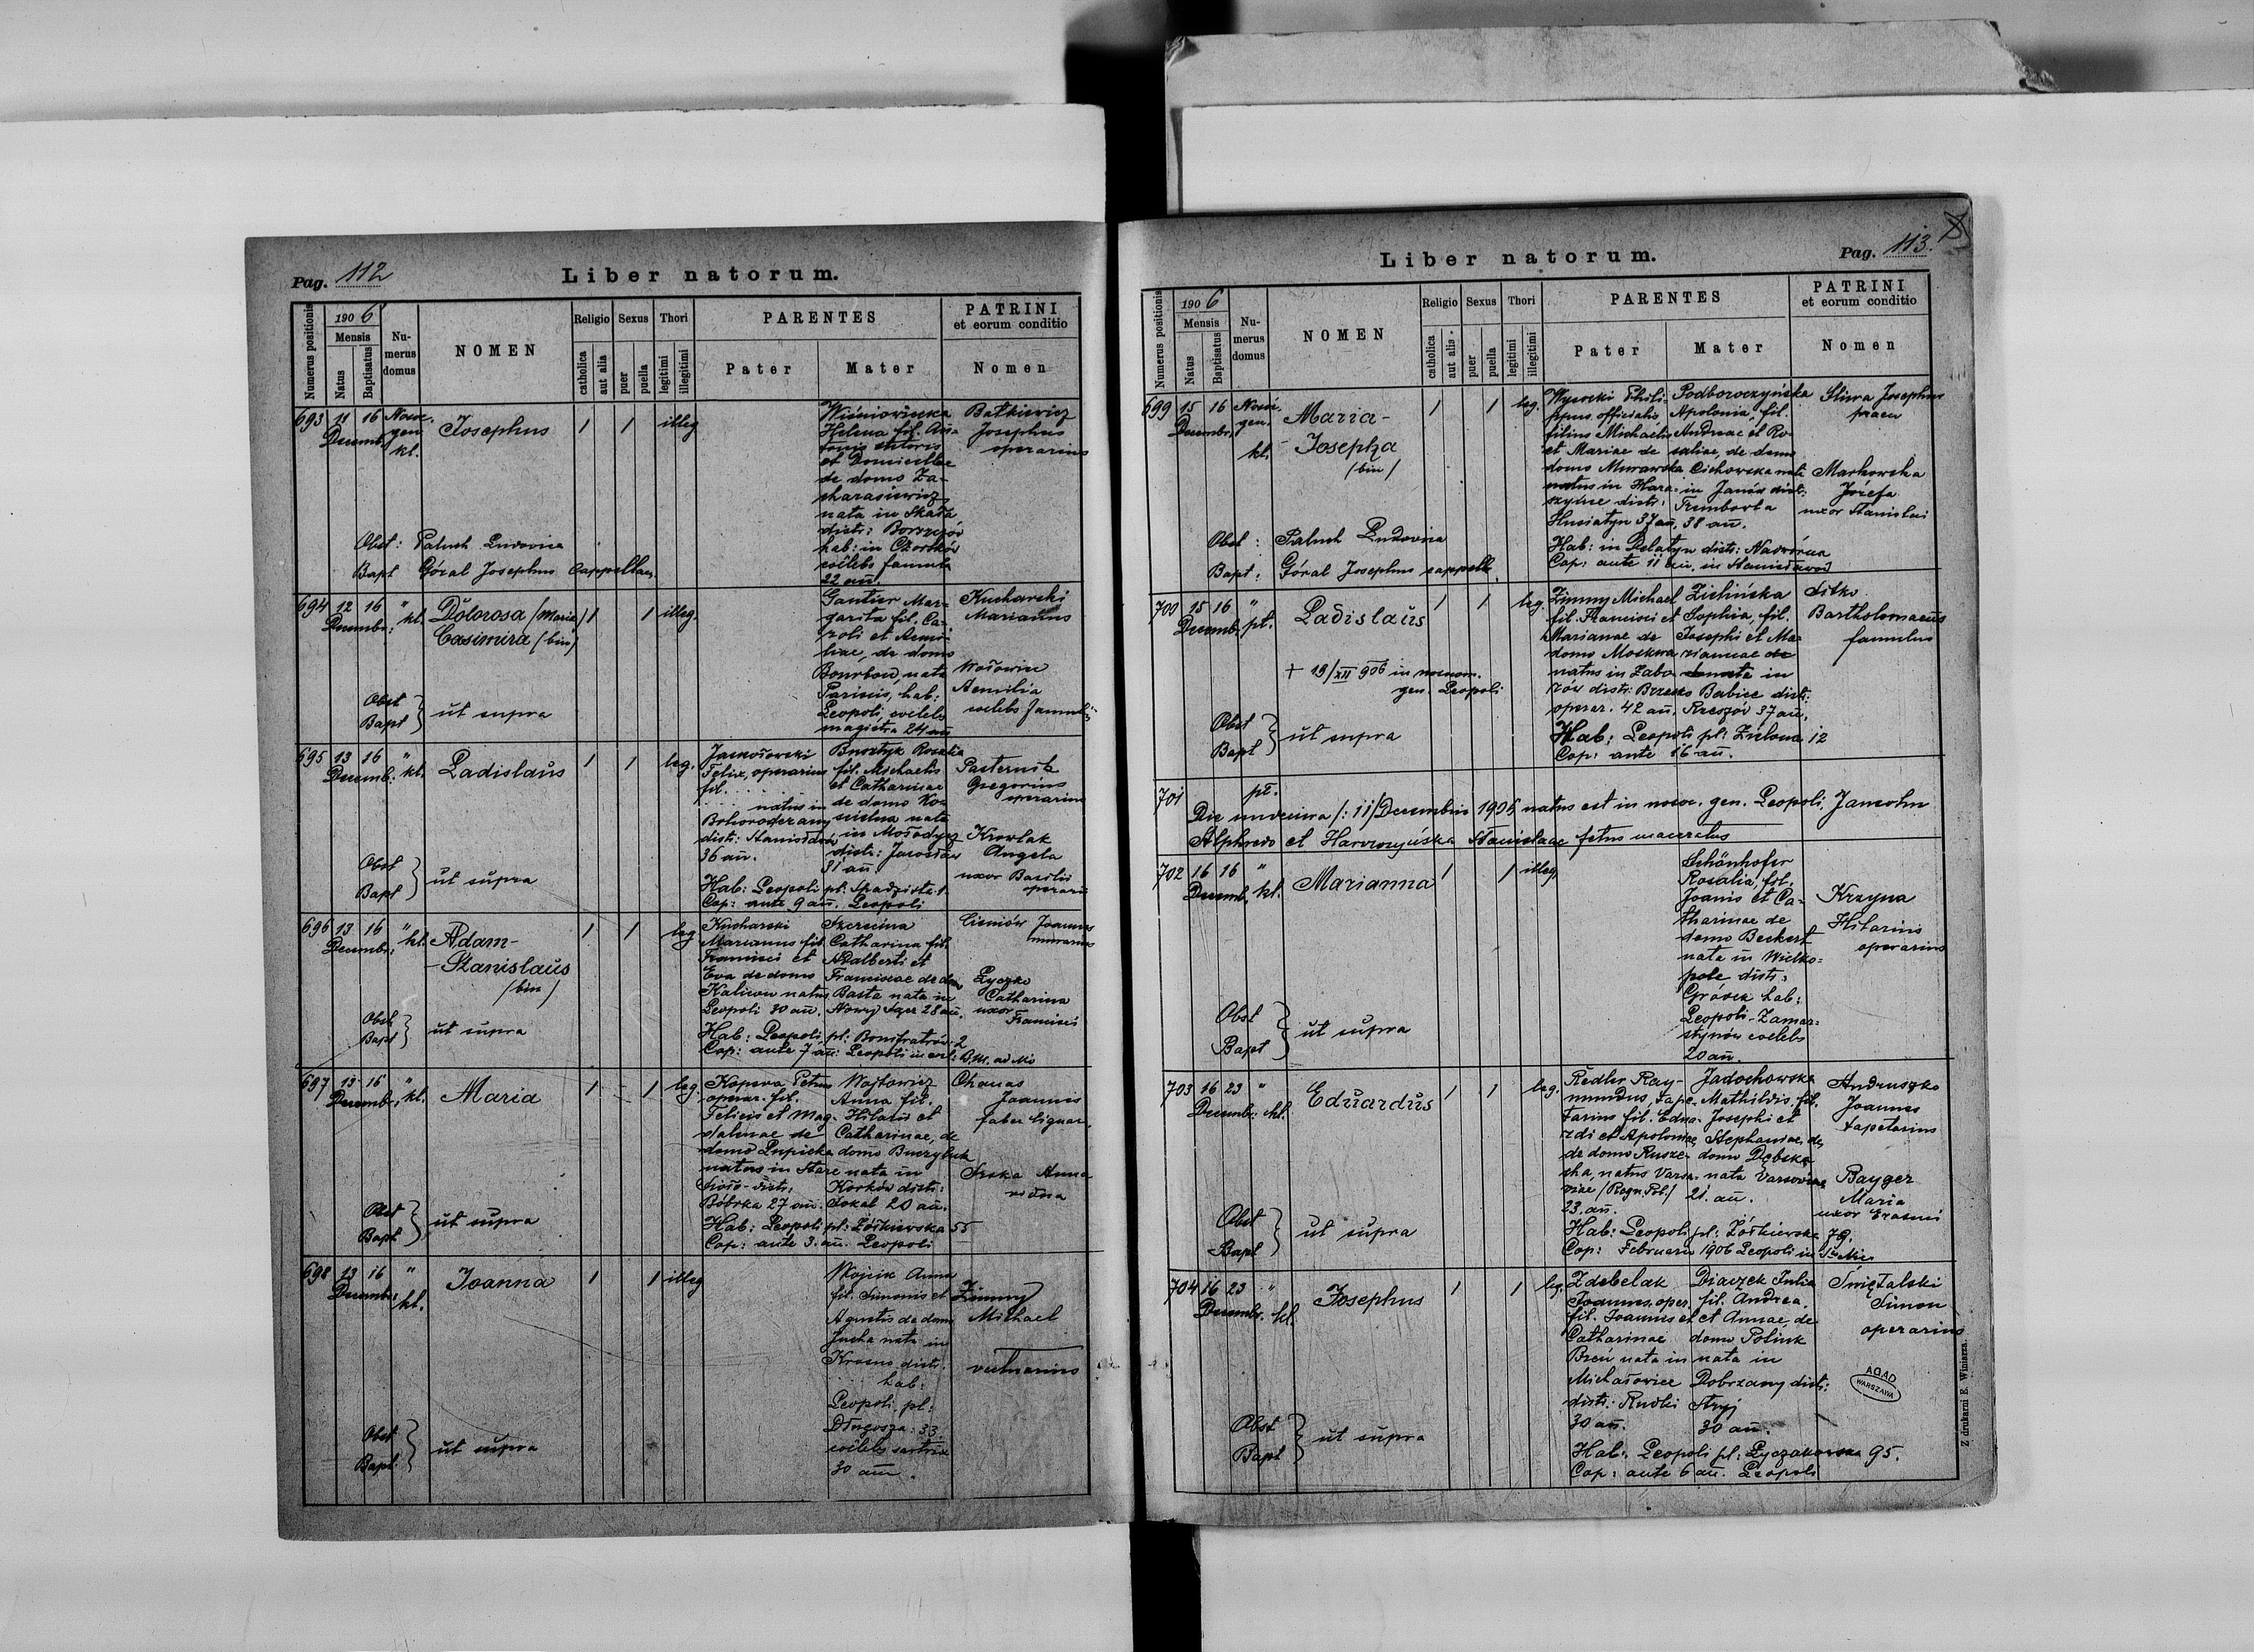 Pag. 112
Liber natorum.
Numerus positionis
1906
Mensis
Natus
Baptisatus
Nu-
merus
domus
NOMEN
Religio
catholica
aut alia
Sexus
puer
puella
Thori
legitimi
illegitimi
PARENTES
Pater
Mater
PATRINI
et eorum conditio
Nomen
693 11 16 Nosoc. gen. kl.
Decembr.
Josephus
1 1 illeg
Wiśniowiecka
Helena fil. An-
tonii sutoris
et Domicellae
de domo Za-
charasiewicz
nata in Skała
distr: Borszczów
hab: in Czortków
coelebs famula
22 an.
Batkiewicz
Josephus
operarius
Obst: Paluch Ludovica
Bapt Góral Josephus Cappellan.
694 12 16 " kl.
Decembr:
Dolorosa /Maria/
Casimira /bin/
1 1 illeg.
Gautier Mar-
garita fil. Ca-
roli et Aemi-
liae, de domo
Bourbon, nata
Parisiis, hab:
Leopoli, coelebs
magistra 24 an
Kucharski
Marianus
Aemilia
coelebs famula
Obst
Bapt } ut supra
695 13 16 " kl.
Decemb:
Ladislaus
1 1 leg.
Felix, operarius
fil. . . . .
. . . . natus in
Bohorodczany
distr: Stanisławów
36 an.
Rozalia
fil. Michaelis
et Catharinae
de domo Ko-
nata
in Mołodycz
distr: Jarosław
31 an
Pasternik
Gregorius
operarius
Angela
uxor Basilii
operarii
Hab: Leopoli pl:
Cop: ante 9 an. Leopoli
Obst
Bapt } ut supra
696 13 16 " kl.
Decembr:
Adam-
-Stanislaus
/bin/
1 1 leg
Kucharski
Marianus fil.
Francisci et
Eva de domo
natus
Leopoli 30 an.
Catharina fil.
Adalberti et
Franciscae de dom
Basta nata in
Nowy Sącz 28 an.
Joannes
murarius
Łyczko
Catharina
uxor
Francisci
Hab: Leopoli pl: Bonifratrów 2
Cop: ante 7 an: Leopoli in ecl: B.M. ad Niv
Obst
Bapt } ut supra
697 13 16 " kl.
Decembr:
Maria
1 1 leg.
Kopera Petrus
operar. fil.
Felicis et Mag-
dalenae de
domo Lupicka
natus in Stare
Sioło distr:
Bóbrka 27 an.
Wojtowicz
Anna fil.
Hilarii et
Catharinae, de
domo
nata in
Korków distr:
Sokal 20 an.
Ohanas
Joannis
faber lignar.
Anna
vidua
Hab: Leopoli pl: Żółkiewska 55
Cop: ante 3. an. Leopoli
Obst
Bapt } ut supra
698 13 16 " kl.
Decembr:
Joanna
1 1 illeg
Wojcik Anna
fil. Simonis et
Agnetis de dom
nata in
Krosno distr.
. . . . hab:
Leopoli. pl:
Długosza: 33.
coelebs sartrix
30 ann.
Zimny
Michael
Obst
Bapt. } ut supra
Pag. 113.
Liber natorum.
Numerus positionis
1906
Mensis
Natus
Baptisatus
Nu-
merus
domus
NOMEN
Religio
catholica
aut alia
Sexus
puer
puella
Thori
legitimi
illegitimi
PARENTES
Pater
Mater
PATRINI
et eorum conditio
Nomen
699 15 16 Nosoc. gen. kl.
Decembr.
Maria-
-Josepha
/bin/
1 1 leg.
Wysocki Phili-
ppus officialis
filius Michaelis
et Mariae de
domo Murawska
natus in Hara-
szyńce distr:
Husiatyn 37 an,
Podboroczyńska
Apolonia, fil.
Andreae et Ro-
saliae, de domo
Cichowska nata
in Janów distr:
Trembowla
38 an.
Śliwa Josephus
Markowska
Józefa
uxor Stanislai
Hab: in Delatyn distr: Nadwórna
Cop: ante 11 an. in Stanisławów
Obst: Paluch Ludovica
Bapt: Góral Josephus cappella.
700 15 16 " pt.
Decembr
Ladislaus
1 1 leg.
Zimmy Michael
fil. Francisci et
Marianae de
domo Moskwa
natus in Zabo-
rów distr: Brzesko
operar. 42 an,
Zielińska
Sophia, fil.
Josephi et Ma-
rianae de
nata in
Babice distr:
Rzeszów 37 an.
Sitko
Bartholomaeus
famulus
+ 19/XII 906 in nosocom.
gen. Leopoli
Hab: Leopoli pl: Zielona 12
Cop: ante 16 an.
Obst
Bapt } ut supra
701 pt.
Die undecima /:11/ Decembris 1906 natus est in nosoc. gen. Leopoli, Jansohn
Alphredo et Stanislaae fetus maceratus
702 16 16 " kl.
Decemb.
Marianna
1 1 illeg
Schönhofer
Rosalia, fil.
Joanis et Ca-
tharinae de
domo Beckert
nata in Wielko-
pole distr:
Gródek hab:
Leopoli-Zamar-
stynów coelebs
20 an.
Krzyna
Hilarius
operarius
Obst
Bapt } ut supra
703 16 23 " kl.
Decembr:
Eduardus
1 1 leg.
Redler Ray-
mundus, tape-
tarius fil. Edua-
rdi et Apoloniae
de domo Rusze-
cka, natus Varso-
viae /Regn. Pol./
23. an.
Jadochowska
Mathildis, fil.
Josephi et
Stephaniae, de
domo Dębska
nata Varsoviae
21. an.
Andruszko
Joannes
tapetarius
Bayger
Maria
uxor Erasmi
Hab: Leopoli pl: Żółkiewska 79.
Cop: Februarii 1906 Leopoli in
Obst
Bapt } ut supra
704 16 23 " kl.
Decembr.
Josephus
1 1 leg.
Zdebelak
Joannes. oper.
fil. Joannes et
Catharinae
Breń nata in
Michałowice
distr: Rudki
30 an.
Diaczek Julia
fil. Andrea.
et Annae, de
domo Poliuk
nata in
Dobrzany distr:
Stryj
30 an.
Świętalski
Simon
operarius
Hab: Leopoli pl: Łyczakowska 95.
Cop: ante 6 an. Leopoli
Obst
Bapt } ut supra
AGAD
WARSZAWA
Z drukarni E. Winiarza.